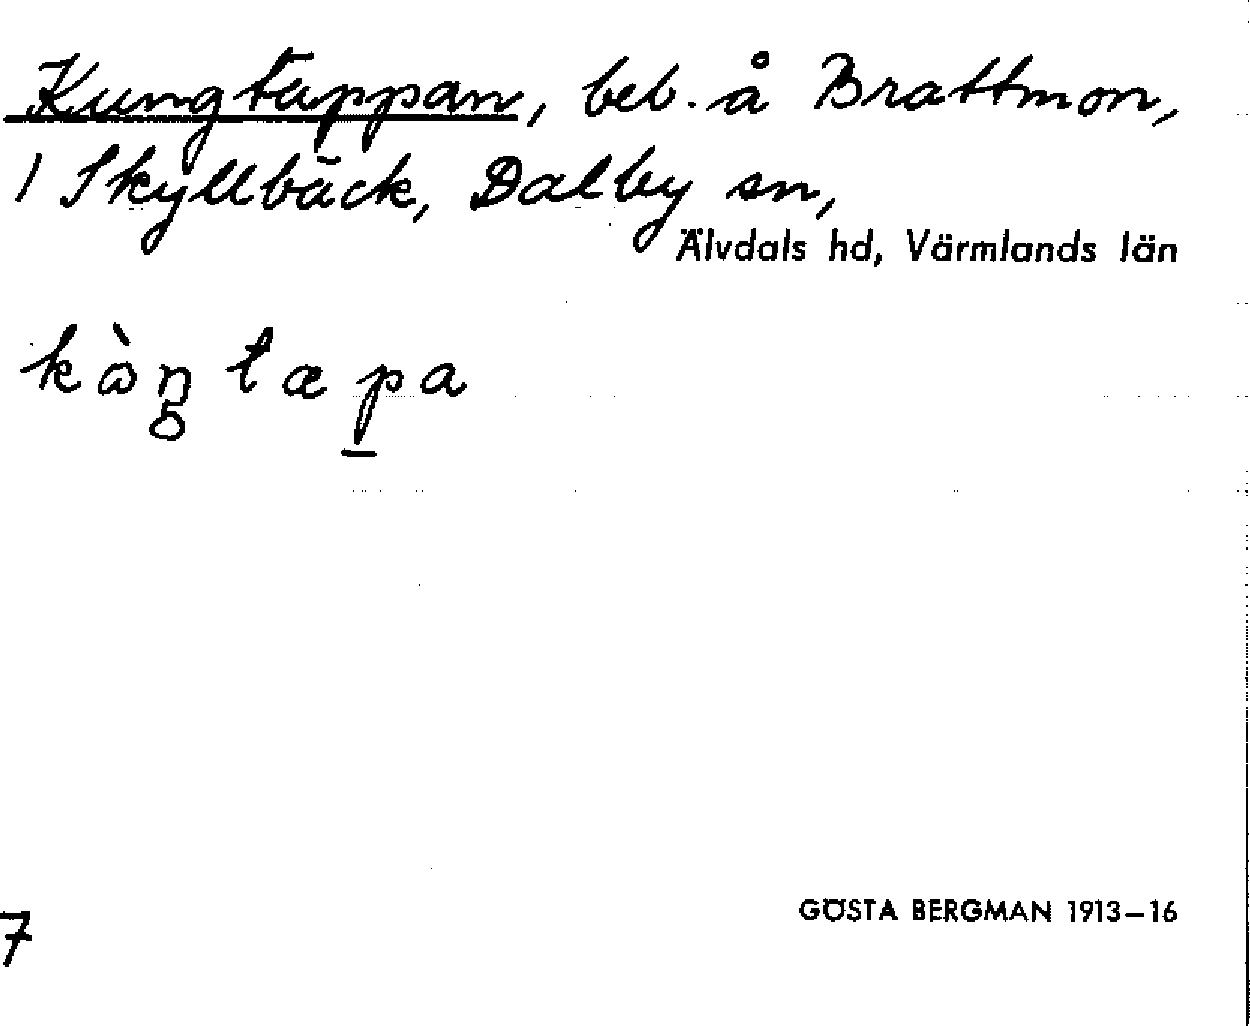 Kungtäppan, beb. å Brattmon,
1 Skyllbäck, Dalby sn,
Älvdals hd, Värmlands län
kὼŋ tæpa
7
GÖSTA BERGMAN 1913–16